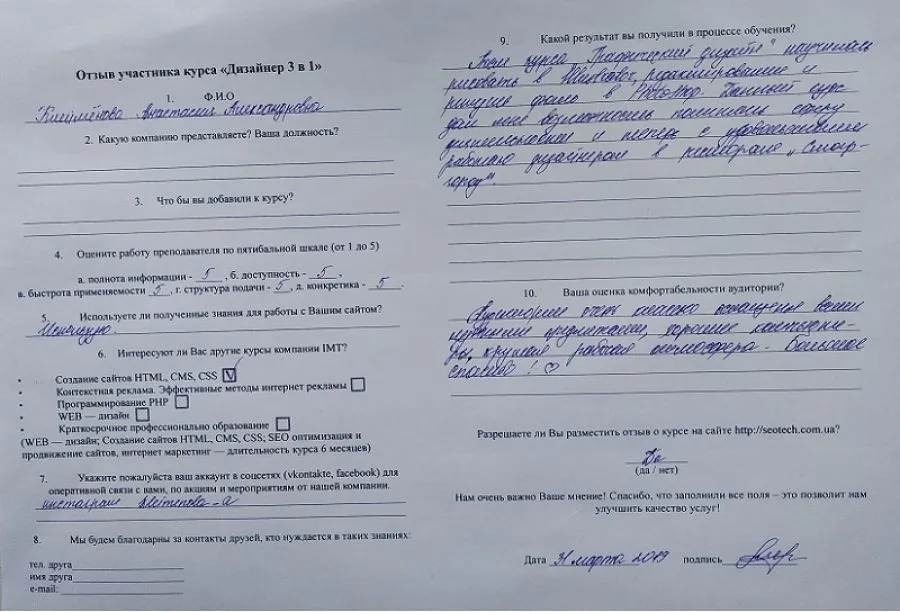 Отзыв участника курса «Дизайнер 3 в 1»
1. Ф.И.О
Анастасия Александровна
2. Какую компанию представляете? Ваша должность?
3. Что бы вы добавили к курсу?
4. Оцените работу преподавателя по пятибальной шкале (от 1 до 5)
а. полнота информации - 5 , б. доступность - 5 ,
в. быстрота применяемости 5 , г. структура подачи - 5 , д. конкретика - 5 .
5. Используете ли полученные знания для работы с Вашим сайтом?
Использую.
6. Интересуют ли Вас другие курсы компании IMT?
• Создание сайтов HTML, CMS, CSS V
• Контекстная реклама. Эффективные методы интернет рекламы
• Программирование PHP
• WEB — дизайн
• Краткосрочное профессионально образование
(WEB — дизайн; Создание сайтов HTML, CMS, CSS; SEO оптимизация и
продвижение сайтов, интернет маркетинг — длительность курса 6 месяцев)
7. Укажите пожалуйста ваш аккаунт в соцсетях (vkontakte, facebook) для
оперативной связи с вами, по акциям и мероприятиям от нашей компании.
инстаграм
8. Мы будем благодарны за контакты друзей, кто нуждается в таких знаниях:
тел. друга
имя друга
e-mail:
9. Какой результат вы получили в процессе обучения?
После курса "Графический дизайн" научилась
рисовать в Illustrator, редактировании и
фото в Photoshop. Данный курс
дал мне возможность поменять сферу
деятельности и теперь с удовольствием
работаю дизайнером в ресторане „Смак-
город".
10. Ваша оценка комфортабельности аудитории?
Аудитория очень классно оснащена всеми
нужными предметами, хорошие компьюте-
ры, крутая рабочая атмосфера. Большое
спасибо! ♡
Разрешаете ли Вы разместить отзыв о курсе на сайте http://seotech.com.ua?
Да
(да / нет)
Нам очень важно Ваше мнение! Спасибо, что заполнили все поля – это позволит нам
улучшить качество услуг!
Дата 31 марта 2019 подпись